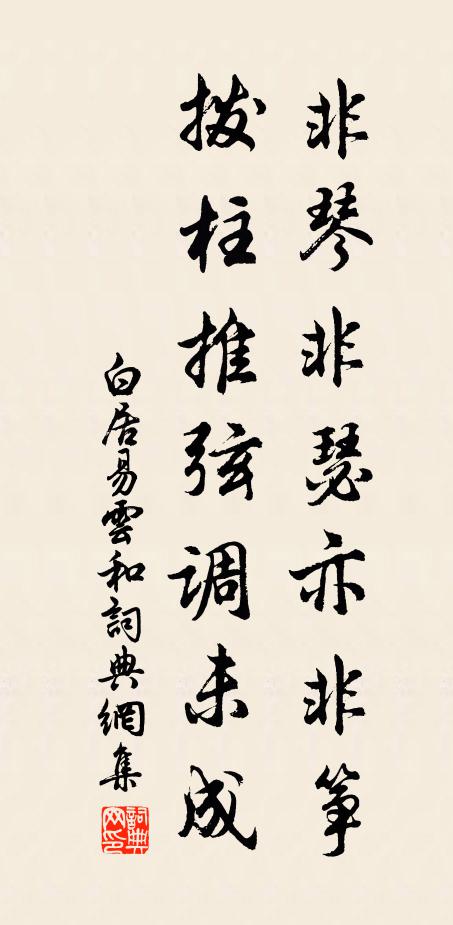 非琴非瑟亦非筝
拨柱推弦调未成
白居易雲和詞典網集
詞典网印